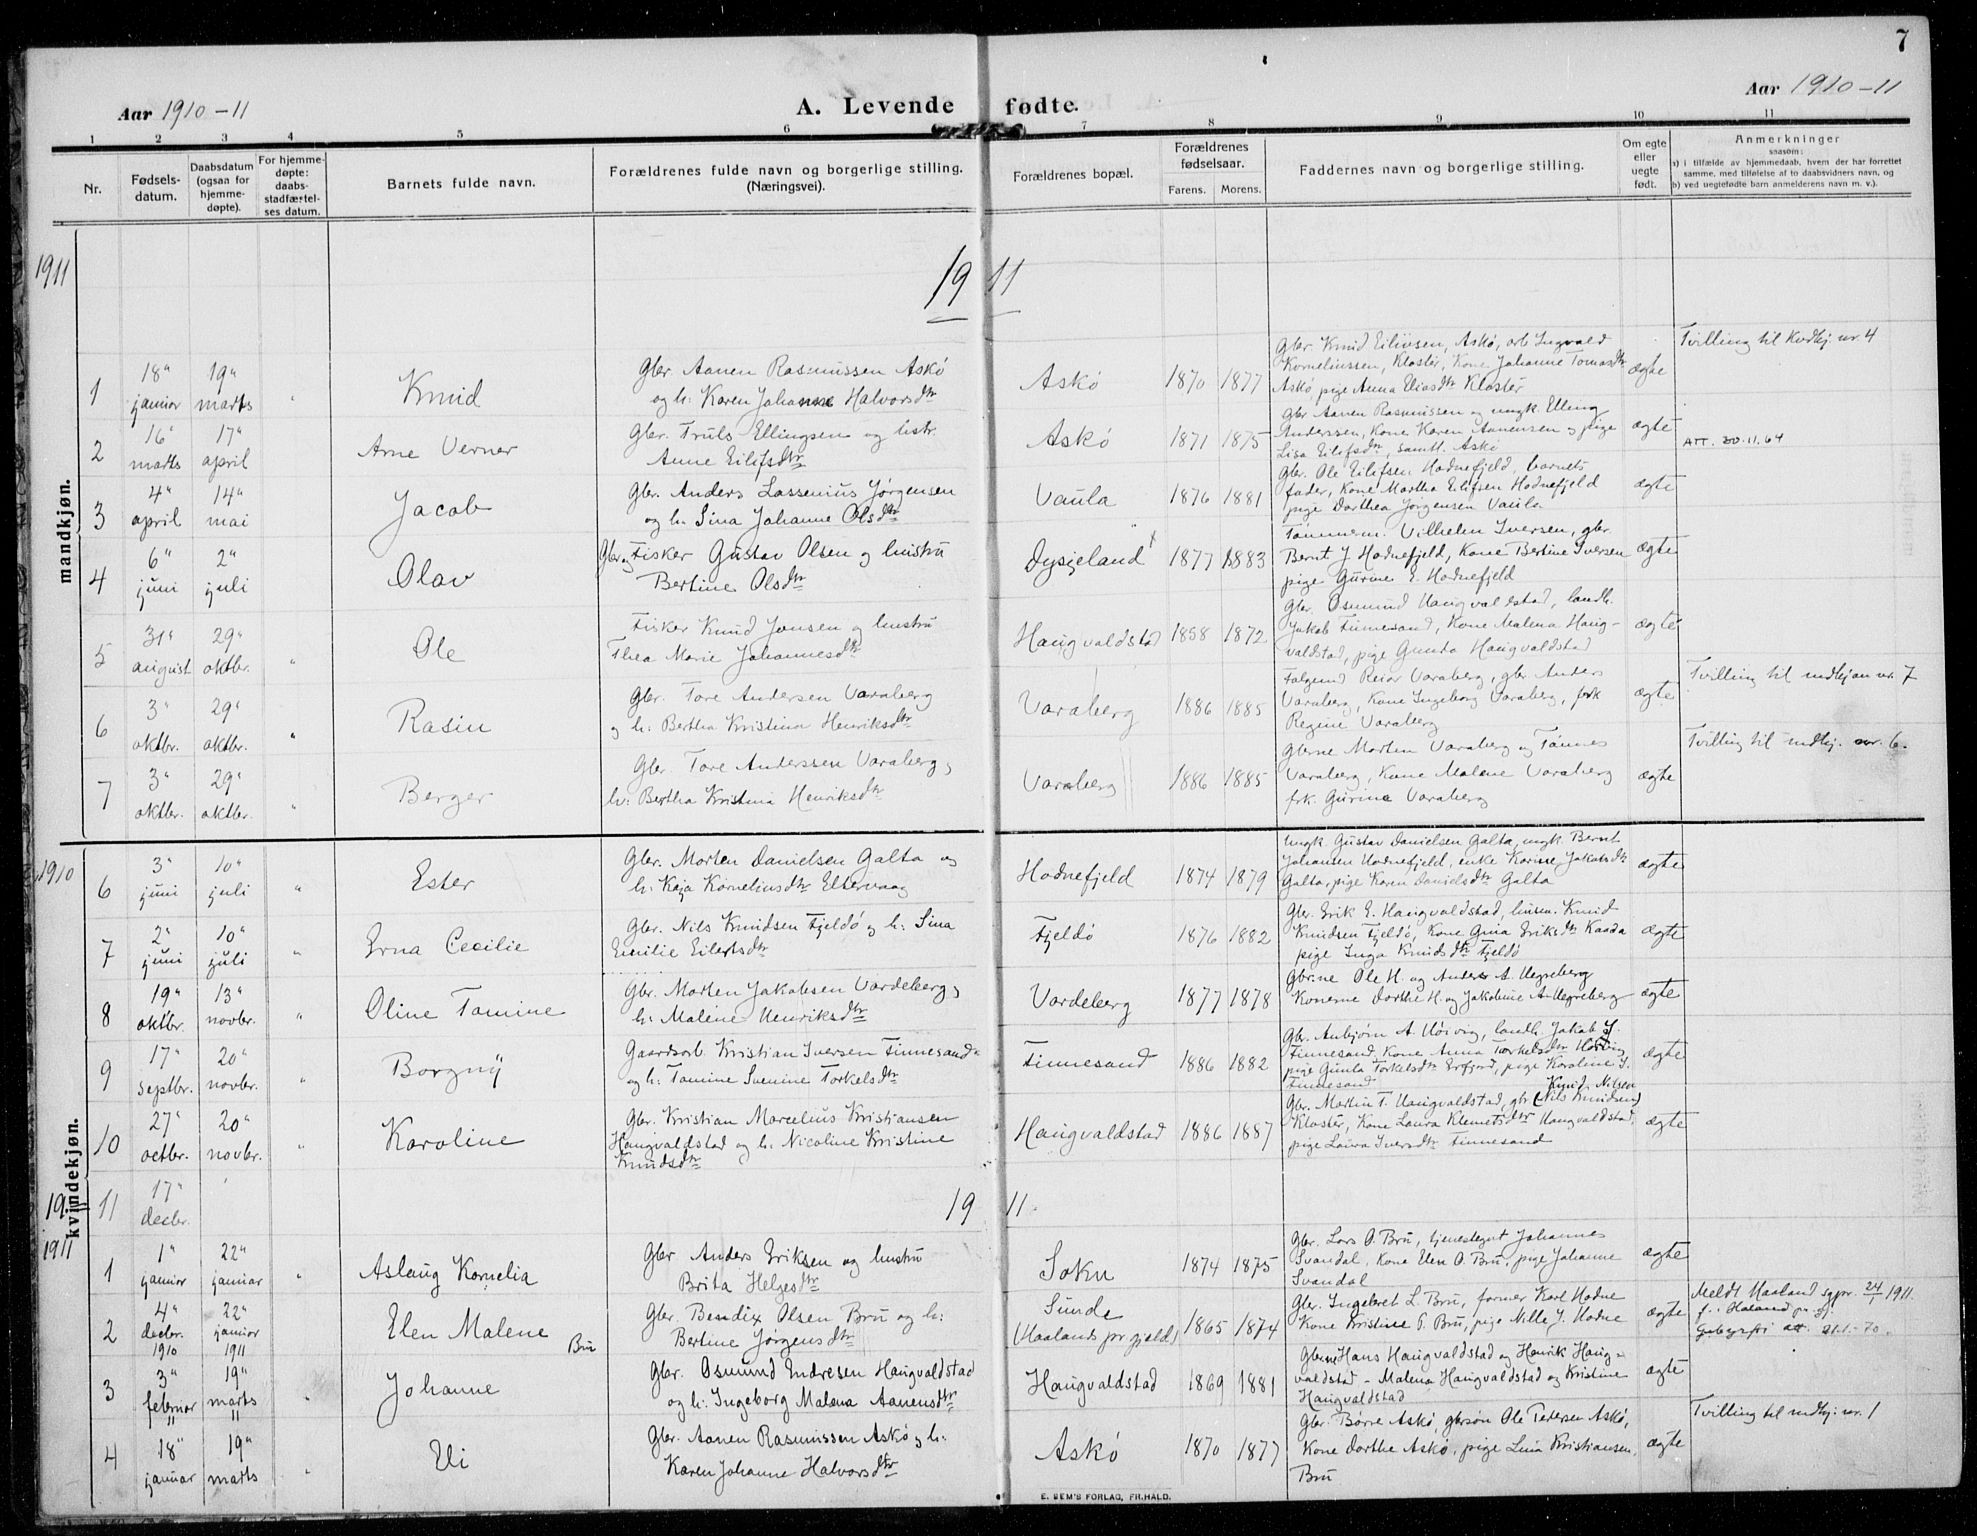 7
Aar 1910-11
A. Levende fødte.
Aar 1910-11
1 2 3 4 5 6 7 8 9 10 11
Nr.
Fødsels-
datum.
Daabsdatum
(ogsaa for
hjemme-
døpte).
For hjemme-
døpte:
daabs-
stadfærtel-
ses datum.
Barnets fulde navn.
Forældrenes fulde navn og borgerlige stilling.
(Næringsvei).
Forældrenes bopæl.
Forældrenes
fødselsaar.
Farens. Morens.
Faddernes navn og borgerlige stilling.
Om egte
eller
uegte
født.
Anmerkninger
saasom:
a) i tilfælde av hjemmedaab, hvem der har forrettet
samme, med tilføielse af to daabsvidners navn, og
b) ved uegtefødte barn anmelderens navn m. v.).
1911
19 11
mandkjøn.
1
18"
januar
19"
marts
Knud
Gbr. Aanen Rasmussen Askø
og h: Karen Johanne Halvorsdtr
Askø
1870 1877
Gbr. Knud Eilivsen, Askø, arb Ingvald
Korneliussen, Kloster, Kone Johanne Tomasdtr
Askø pige Anna Eliasdtr Kloster
ægte
Tvilling til Kvdkj. nr. 4
2
16"
marts
17"
april
Arne Verner
Gbr. Truls Ellingsen og hstr.
Anne Eilifsdtr
Askø
1871 1875
Gbr Aanen Rasmussen og ungk. Elling
Anderssen, Kone Karen Aanensen og pige
Lisa Eilifsdtr, samtl. Askø
ægte
ATT. 30.11.64
3
4"
april
14"
mai
Jacob
Gbr. Anders Lassenius Jørgensen
og h. Sina Johanne Olsdtr
Vaula
1876 1881
Gbr. Ole Eilifsen Hodnefjeld, barnets
fader, Kone Martha Eilifsen Hodnefjeld
pige Dorthea Jørgensen Vaula
ægte
4
6"
juni
2"
juli
Olav
Gbr. og Fisker Gustav Olsen og hustru
Bertine Olsdtr
Dysjeland
1877 1883
Tømmerm. Vilhelm Iversen, gbr.
Bernt J Hodnefjeld, Kone Bertine Iversen
pige Gurine E. Hodnefjeld
ægte
5
31"
august
29"
oktbr.
"
Ole
Fisker Knud Jonsen og hustru
Thea Marie Johannesdtr
Haugvaldstad
1858 1872
Gbr. Osmund Haugvaldstad, landh.
Jakob Finnesand, Kone Malena Haug-
valdstad, pige Gunda Haugvaldstad
ægte
6
3"
oktbr.
29"
oktbr.
"
Rasin
Gbr. Tore Andersen Varaberg
og h: Bertha Kristina Henriksdtr
Varaberg
1886 1885
Folgemd Reiar Varaberg, gbr Anders
Varaberg, Kone Ingeborg Varaberg, frk
Regine Varaberg
ægte
Tvilling til mdkjøn nr. 7
7
3"
oktbr.
29"
oktbr.
"
Berger
Gbr. Tore Anderssen Varaberg,
h: Bertha Kristina Henriksdtr
Varaberg
1886 1885
Gbrne Morten Varaberg og Tønnes
Varaberg, Kone Malene Varaberg
frk. Gurine Varaberg
ægte
Tvilling til mdkj. nr. 6.
1910
kvindekjøn.
6
3"
juni
10"
juli
"
Ester
Gbr. Morten Danielsen Galta og
h: Kaja Kornelinsdtr Eltervaag
Hodnefjeld
1874 1879
Ungk. Gustav Danielsen Galta, ungk Bernt
Johansen Hodnefjeld, enke Karine Jakobsdtr
Galta, pige Karen Danielsdtr Galta
ægte
7
2"
juni
10"
juli
"
Erna Cecilie
Gbr. Nils Knudsen Fjeldø og h: Sina
Emilie Eilertsdtr
Fjeldø
1876 1882
Gbr. Erik E. Haugvaldstad, husm. Knud
Knudsen Fjeldø, Kone Guia Eriksdtr Kaada
pige Inga Knudsdtr Fjeldø
ægte
8
19"
oktbr.
13"
novbr.
"
Oline Tamine
Gbr. Morten Jakobsen Vardeberg,
h: Malene Henriksdtr
Vardeberg
1877 1878
Gbr.ne Ole H. og Anders A. Hegreberg
Konerne Dorthe H. og Jakobine A. Hegreberg
ægte
9
17"
septbr.
20"
novbr.
"
Borgny
Gaardsarb. Kristian Iversen Finnesand
og h: Tamine Svenine Torkelsdtr
Finnesand
1886 1882
Gbr. Anbjørn A. Hørvig, landh. Jakob J.
Finnesand, Kone Anna Torkelsdtr Hørvig
pige Gunla Torkelsdtr Erfjord, pige Karoline S.
Finnesand
ægte
10
27"
octbr.
20"
novbr.
"
Karoline
Gbr. Kristian Marcelius Kristiansen
Haugvaldstad og h: Nicoline Kristine
Knudsdtr
Haugvaldstad
1886 1887
Knud Nilsen
Gbr. Martin T. Haugvaldstad, gbr (Nils Knudsen)
Kloster, Kone Laura Klemetsdtr Haugvaldstad,
pige Laura Iversdtr Finnesand
ægte
11
17"
decbr.
19 11.
1911
1
1"
januar
22"
januar
"
Aslaug Kornelia
Gbr Anders Eriksen og hustru
Brita Helgesdtr
Sokn
1874 1875
Gbr. Lars O. Bru, tjenestegut Johannes
Svandal, Kone Elen O. Bru, pige Johanne
Svandal
ægte
2
4"
decbr.
1910
22"
januar
1911
Elen Malene
Bru
Gbr Bendix Olsen Bru og h:
Bertine Jørgensdtr
Sunde
(Haalands pr.gjeld)
1865 1874
Gbr. Ingebret L. Bru, former Karl Hodne
Kone Kristine O. Bru, pige Mille J. Hodne
ægte
Meldt Haaland sgpr. 24/1 1911.
3
3"
februar
"
19"
marts
"
Johanne
Gbr. Osmund Endresen Haugvaldstad
og h: Ingeborg Malena Aanensdtr
Haugvaldstad
1869 1881
Gbrne Hans Haugvaldstad og Henrik Haug-
valdstad - Malena Haugvaldstad og Kristine
Haugvaldstad
ægte
4
18"
januar
19"
marts
"
Eli
Gbr. Aanen Rasmussen Askø og h:
Karen Johanne Halvorsdtr
Askø
1870 1877
Gbr. Børre Askø, gbrsøn Ole Pedersen Askø,
Kone Dorthe Askø, pige Lina Kristiansen,
Bru
ægte
Tvilling til mdkj. nr. 1
E. SEM'S FORLAG, FR.HALD.